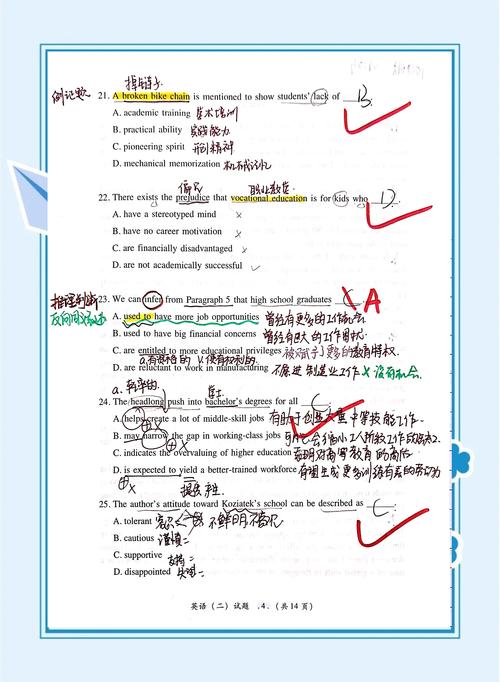 掉链子
例证题 21. A broken bike chain is mentioned to show students' lack of B.
A. academic training 学术培训
B. practical ability 实践能力
C. pioneering spirit 开创精神
D. mechanical memorization 机械记忆
偏见 职业教育
22. There exists the prejudice that vocational education is for kids who D.
A. have a stereotyped mind ×
B. have no career motivation ×
C. are financially disadvantaged ×
D. are not academically successful ✓
推理判断 23. We can infer from Paragraph 5 that high school graduates C A
A. used to have more job opportunities 曾经有更多的工作机会
B. used to have big financial concerns
C. are entitled to more educational privileges 被赋予了更多的教育特权.
D. are reluctant to work in manufacturing 不愿进制造业工作
24. The headlong push into bachelor's degrees for all C.
A. helps create a lot of middle-skill jobs
B. may narrow the gap in working-class jobs
C. indicates the overvaluing of higher education 表明对高等教育的高估
D. is expected to yield a better-trained workforce
25. The author's attitude toward Koziatek's school can be described as C.
A. tolerant
B. cautious 谨慎
C. supportive 支持
D. disappointed 失望
英语（二）试题 .4.（共14页）